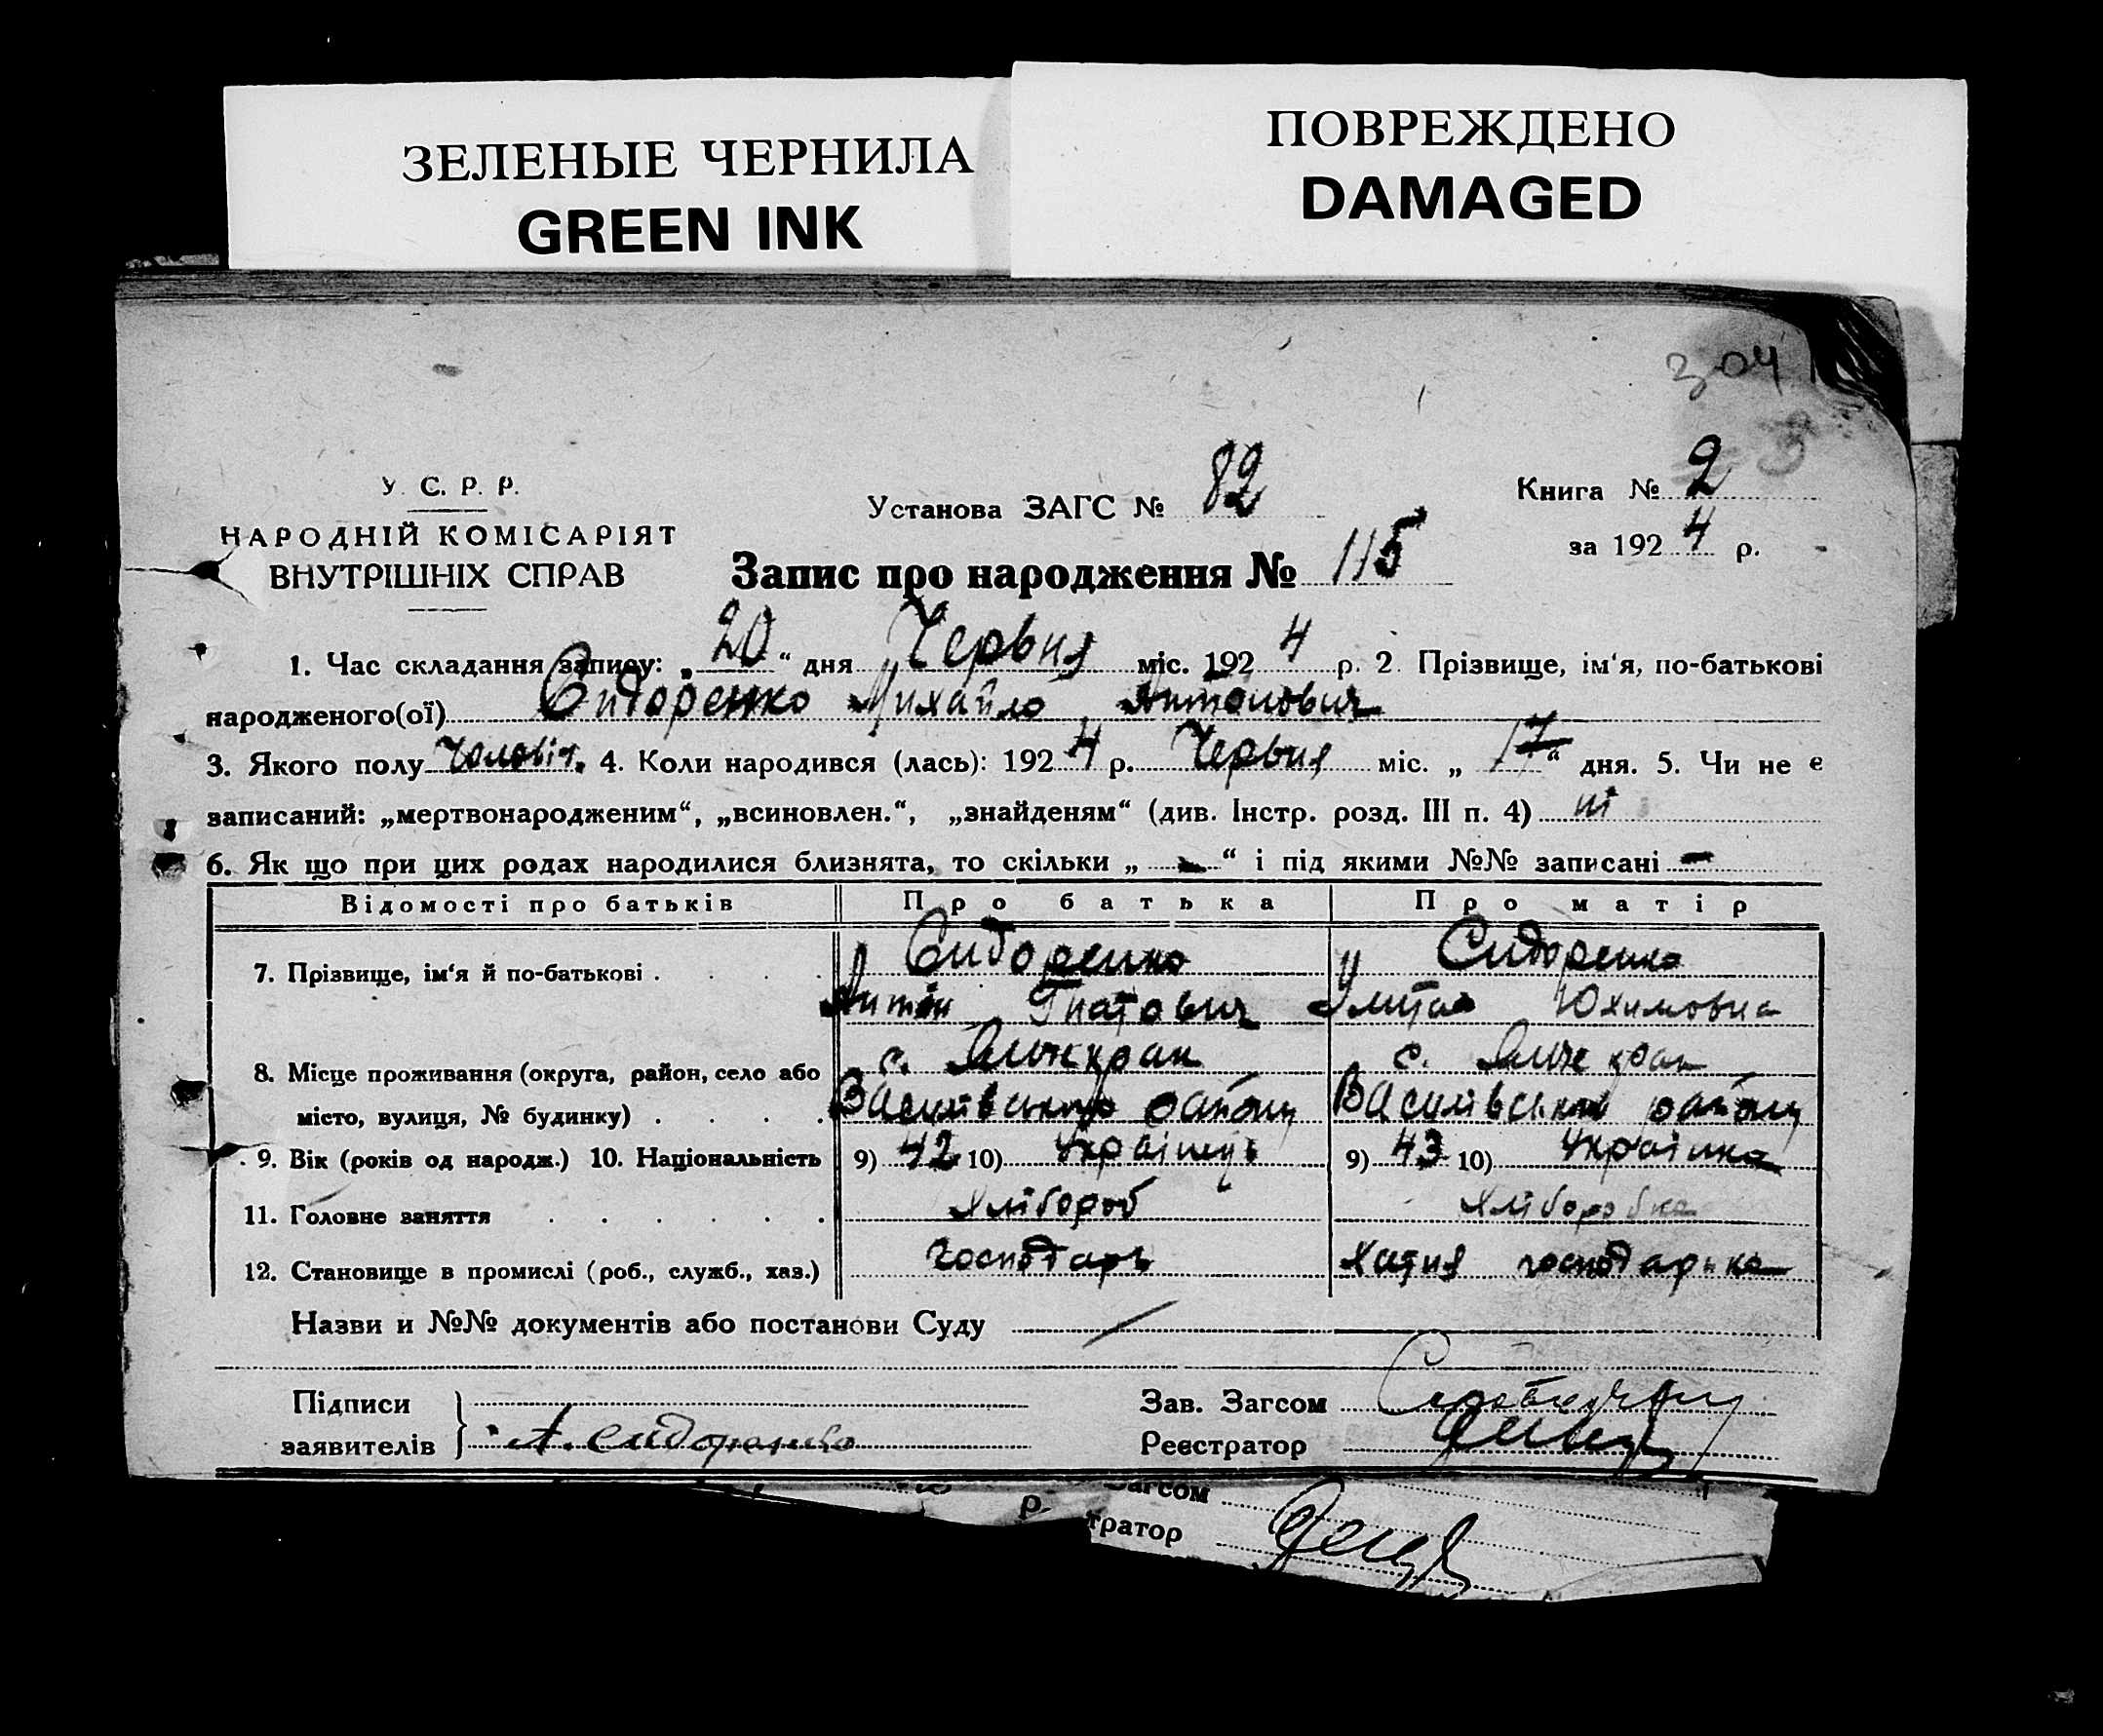 ЗЕЛЕНЫЕ ЧЕРНИЛА
GREEN INK
ПОВРЕЖДЕНО
DAMAGED
304
У. С. Р. Р.
НАРОДНІЙ КОМІСАРІЯТ
ВНУТРІШНІХ СПРАВ
Установа ЗАГС № 82
Книга № 2
за 1924 р.
Запис про народження № 115
1. Час складання запису: „20“ дня Червня міс. 1924 р. 2. Прізвище, ім‘я, по-батькові
народженого(ої) Сидоренко Михайло Антонович
3. Якого полу Чоловіч. 4. Коли народився (лась): 1924 р. Червня міс. „17“ дня. 5. Чи не є
записаний: „мертвонародженим“, „всиновлен.“, „знайденям“ (див. Інстр. розд. III п. 4) ні
6. Як що при цих родах народилися близнята, то скільки „ — “ і під якими №№ записані —
Відомості про батьків Про батька Про матір
7. Прізвище, ім‘я й по-батькові . . . . Сидоренко Сидоренко
Антін Гнатович Юхимовна
8. Місце проживання (округа, район, село або с. с.
місто, вулиця, № будинку) . . . . Василівського району Василівського району
9. Вік (років од народж.) 10. Національність 9) 42 10) Українець 9) 43 10) Українка
11. Головне заняття . . . . . . Хлібороб Хліборобка
12. Становище в промислі (роб., служб., хаз.) господарь хатня господарька
Назви и №№ документів або постанови Суду
Підписи
заявителів А. Сидоренко
Зав. Загсом
Реєстратор
р.
Загсом
тратор